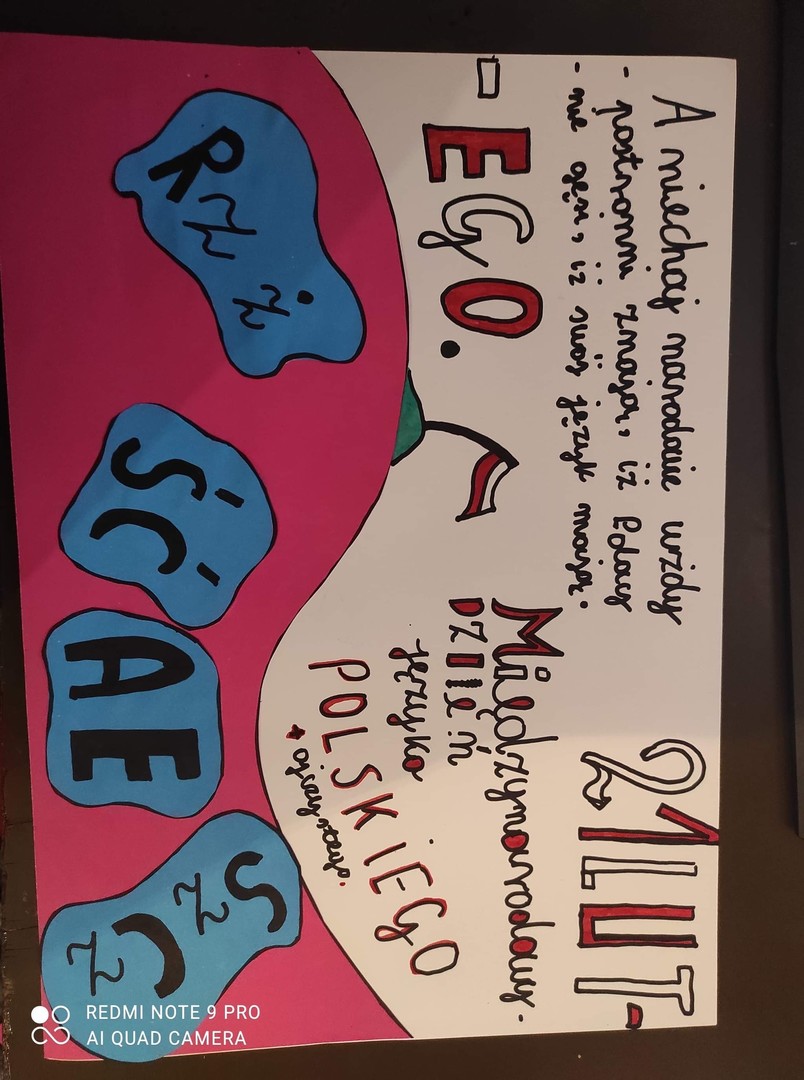 A niechaj narodowie wżdy
- postronni znają, iż Polacy
- nie gęsi, iż swój język mają.
21 LUT-
-EGO.
Międzynarodowy
DZIEń
języka
POLSKIEGO
+
Rz ż
Ś Ć
A E
Sz Cz
REDMI NOTE 9 PRO
AI QUAD CAMERA